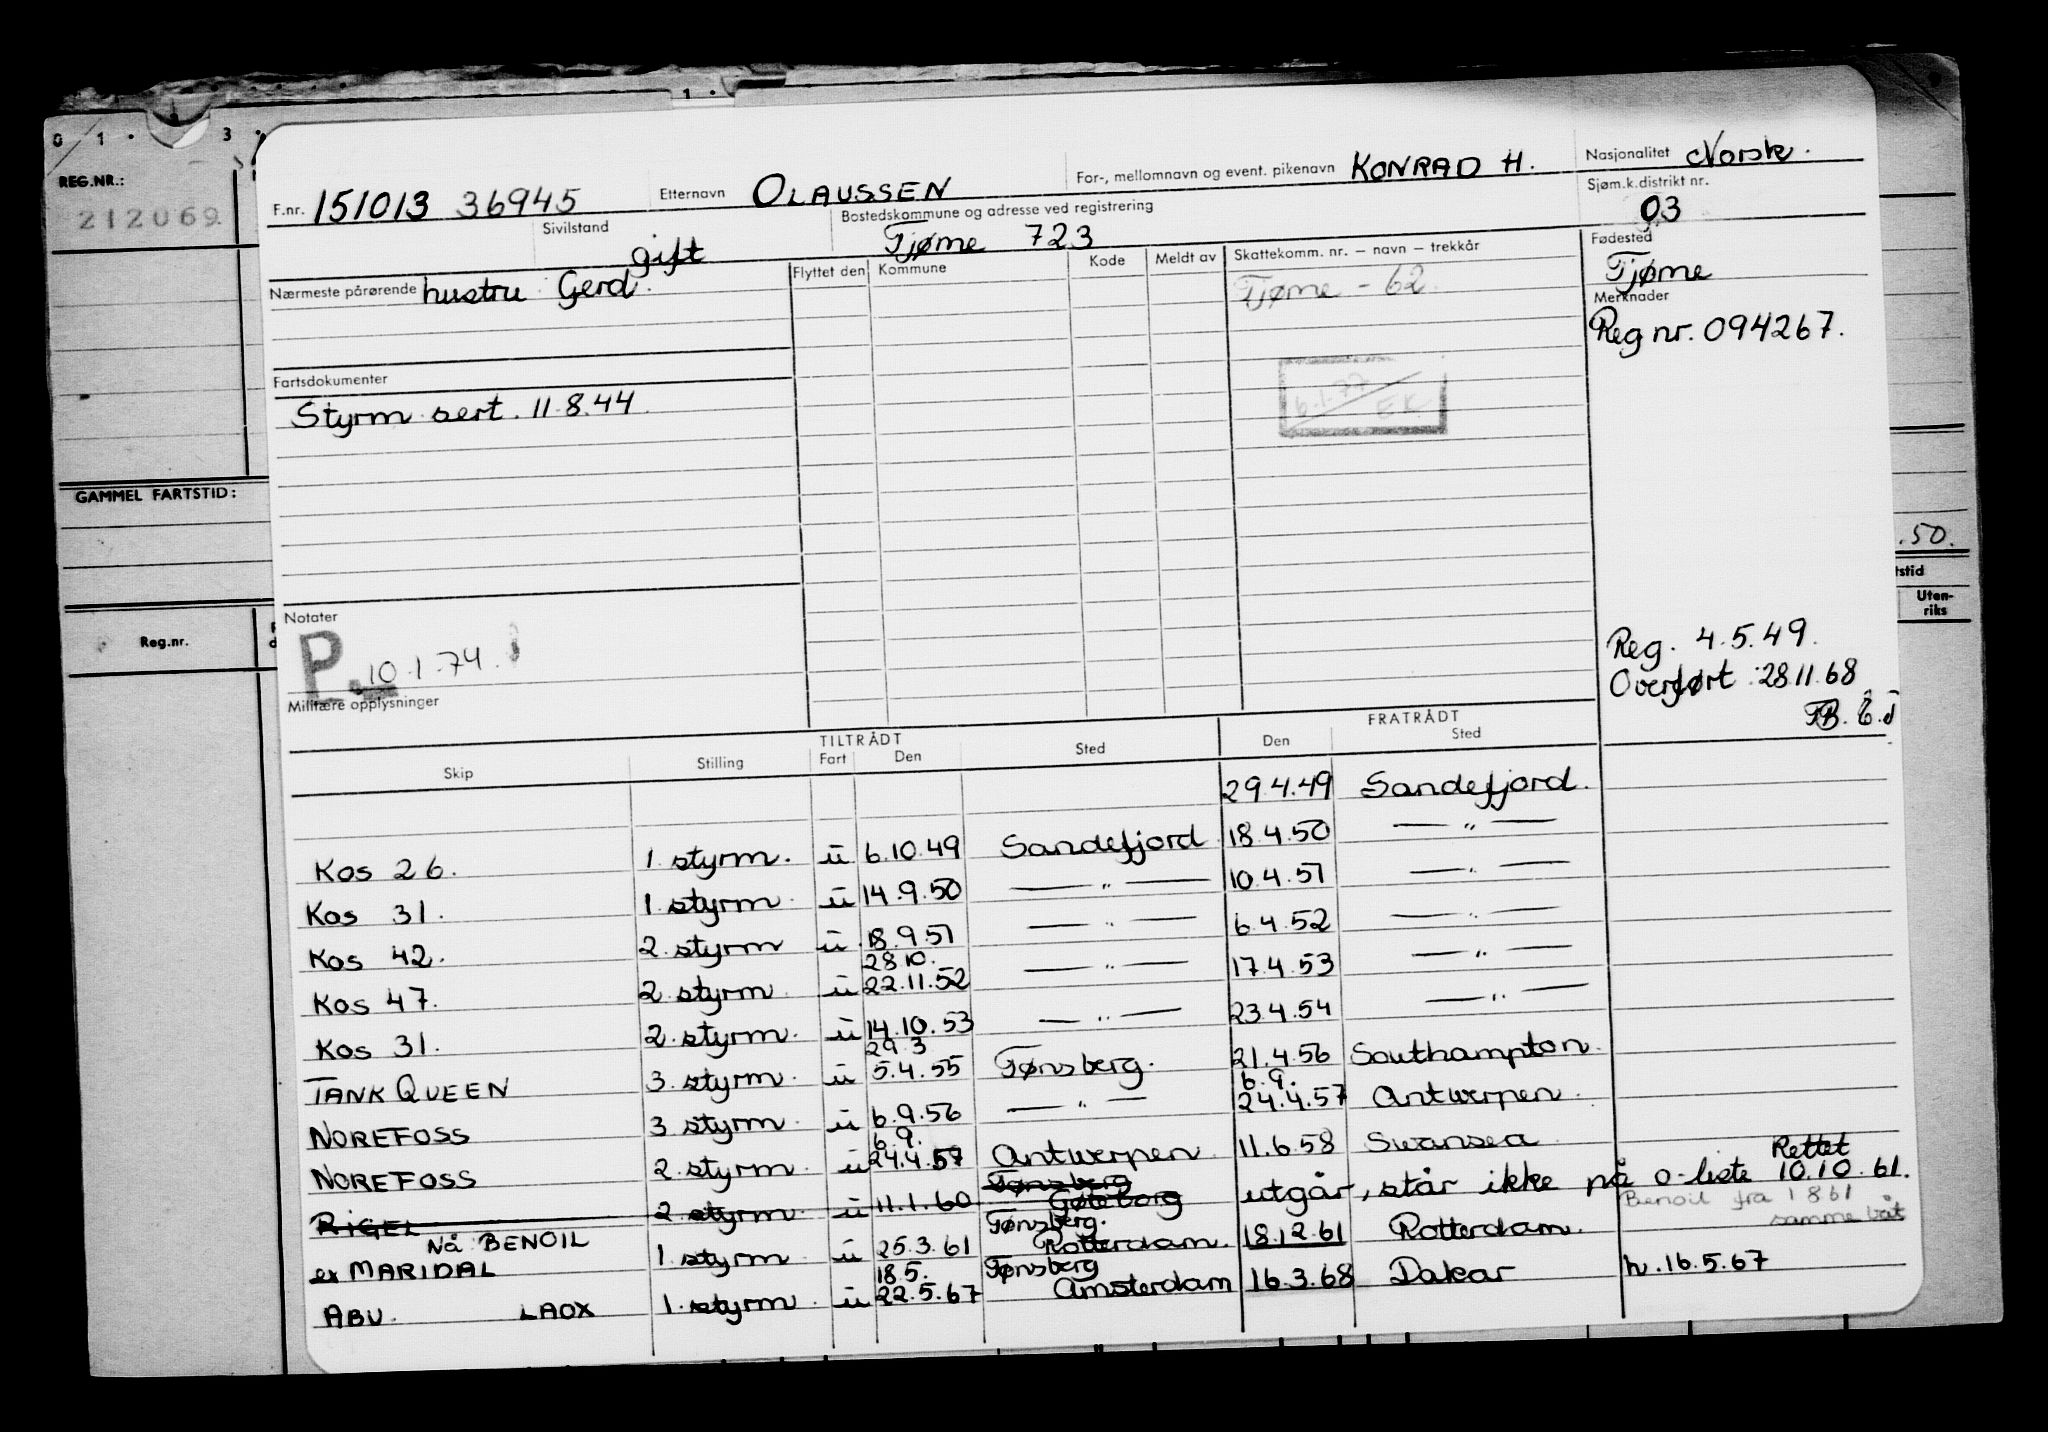 0 1 . 3 .
REG.NR.:
212069.
GAMMEL FARTSTID:
Reg.nr.
.50.
tstid
Uten-
riks
F.nr. 151013 36945 Etternavn OLAUSSEN For-, mellomnavn og event. pikenavn KONRAD H. Nasjonalitet Norsk.
Sivilstand gift Bostedskommune og adresse ved registrering Tjøme 723 Sjøm.k.distrikt nr. 03
Nærmeste pårørende hustru Gerd. Flyttet den Kommune Kode Meldt av Skattekomm. nr. – navn – trekkår Fødested
Tjøme - 62. Tjøme
Merknader
Reg nr. 094267.
Fartsdokumenter
6.1.77
EK
Styrm sert. 11.8.44.
Notater
P. 10.1.74.
Reg. 4.5.49.
Overført 28.11.68
Militære opplysninger
TILTRÅDT FRATRÅDT
Skip Stilling Fart Den Sted Den Sted
29.4.49 Sandefjord.
Kos 26. 1. styrm. u 6.10.49 Sandefjord 18.4.50 — " —
Kos 31. 1. styrm. u 14.9.50 — " — 10.4.51 — " —
Kos 42. 2. styrm u 18.9.51 — " — 6.4.52 — " —
28.10.
Kos 47. 2. styrm. u 22.11.52 — " — 17.4.53 — " —
Kos 31. 2. styrm. u 14.10.53 — " — 23.4.54 — " —
29.3
TANK QUEEN 3. styrm. u 5.4.55 Tønsberg. 21.4.56 Southampton.
6.9.
NOREFOSS 3. styrm. u 6.9.56 — " — 24.4.57 Antwerpen.
6.9.
NOREFOSS 2. styrm. u 24.4.57 Antwerpen. 11.6.58 Swansea
Tønsberg Rettet
RIGEL 2. styrm. u 11.1.60 Gøteborg utgår, står ikke på o-liste 10.10.61.
Nå BENOIL Tønsberg. Benoil fra 1861
samme båt
ex MARIDAL 1. styrm u 25.3.61 Rotterdam. 18.12.61 Rotterdam.
18.5. Tønsberg
ABU. LAOX 1. styrm. u 22.5.67 Amsterdam 16.3.68 Dakar h. 16.5.67